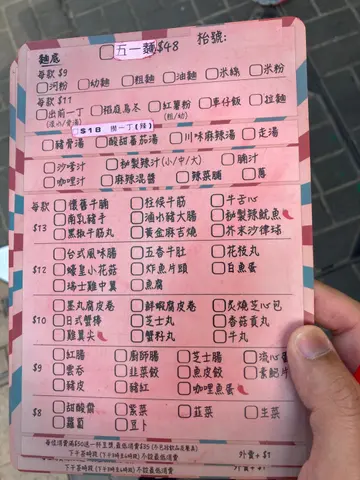 五一麵$48 枱號:
麵底
每款 $9
河粉 幼麵 粗麵 油麵 米線 米粉
每款 $11
出前一丁 稻庭烏冬 紅薯粉 車仔飯 拉麵
(粗/幼)
$18 撈一丁(辣)
豬骨湯 酸甜蕃茄湯 川味麻辣湯 走湯
沙嗲汁 秘製辣汁(小/中/大) 腩汁
咖喱汁 麻辣混醬 辣菜脯 蔥
每款 懷舊牛腩 柱候牛筋 牛舌心
南乳豬手 滷水豬大腸 秘製辣魷魚
$13 黑椒牛筋丸 黃金麻吉燒 芥末沙律球
台式風味腸 五香牛肚 花枝丸
$12 蠔皇小花菇 炸魚片頭 白魚蛋
瑞士雞中翼 魚腐
墨丸腐皮卷 鮮蝦腐皮卷 炙燒芝心包
$10 日式蟹棒 芝士丸 香菇貢丸
雞翼尖 蟹料丸 牛丸
紅腸 廚師腸 芝士腸 流心蛋
$9 雲吞 韭菜餃 魚皮餃 素鮑片
豬皮 豬紅 咖喱魚蛋
$8 甜酸齋 紫菜 韮菜 生菜
蘿蔔 豆卜
每位消費滿$50送一杯豆漿,最低消費$35
下午茶時段 不設最低消費 外賣+$1